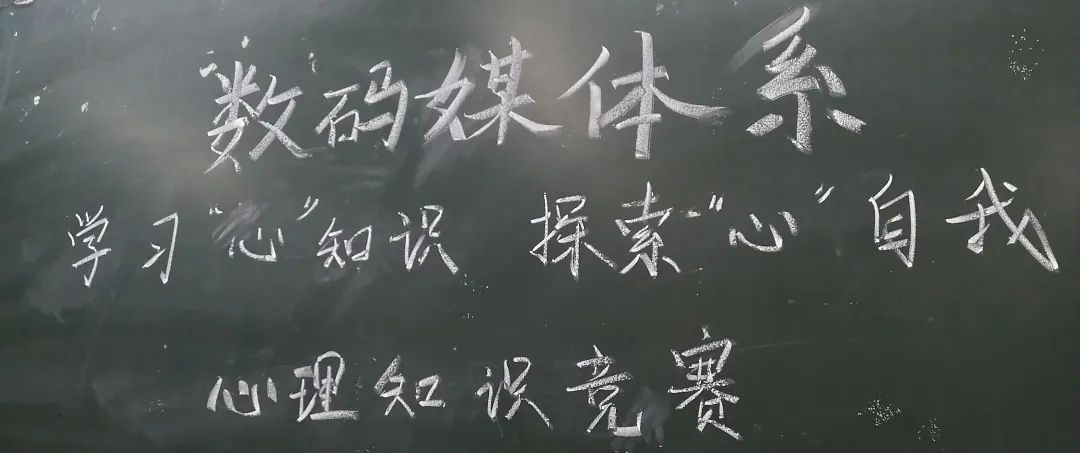 数码媒体系
学习“心”知识 探索“心”自我
心理知识竞赛